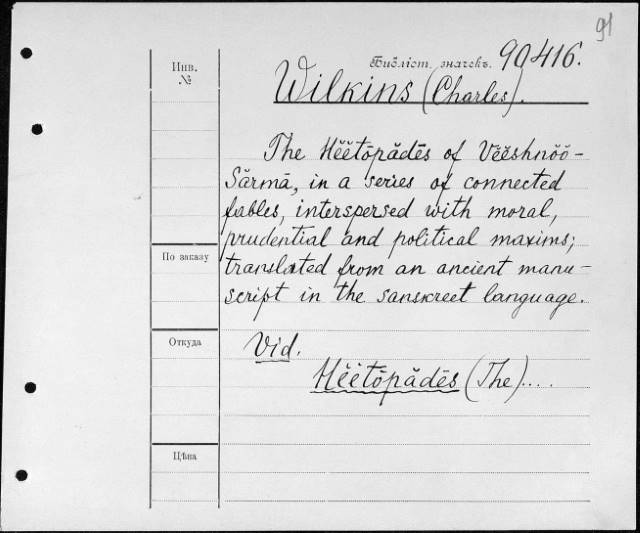 91
Инв.
№
Библіот. значекъ. 90416.
Wilkins (Charles).
The Hĕĕtōpădēs of Vĕĕshnŏŏ-
Sărmā, in a series of connected
fables, interspersed with moral,
prudential and political maxims;
translated from an ancient manu-
script in the sanskreet language.
По заказу
Откуда
Vid.
Hĕĕtōpădēs (The)....
Цѣна